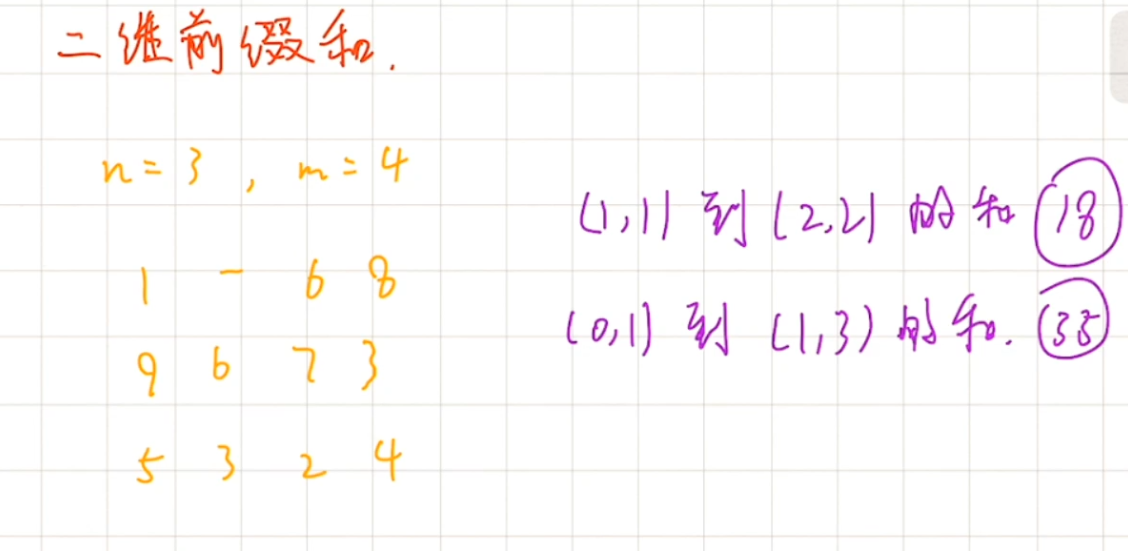 二维前缀和.
n = 3 , m = 4
1 - 6 8
9 6 7 3
5 3 2 4
(1,1) 到 (2,2) 的和 18
(0,1) 到 (1,3) 的和. 35